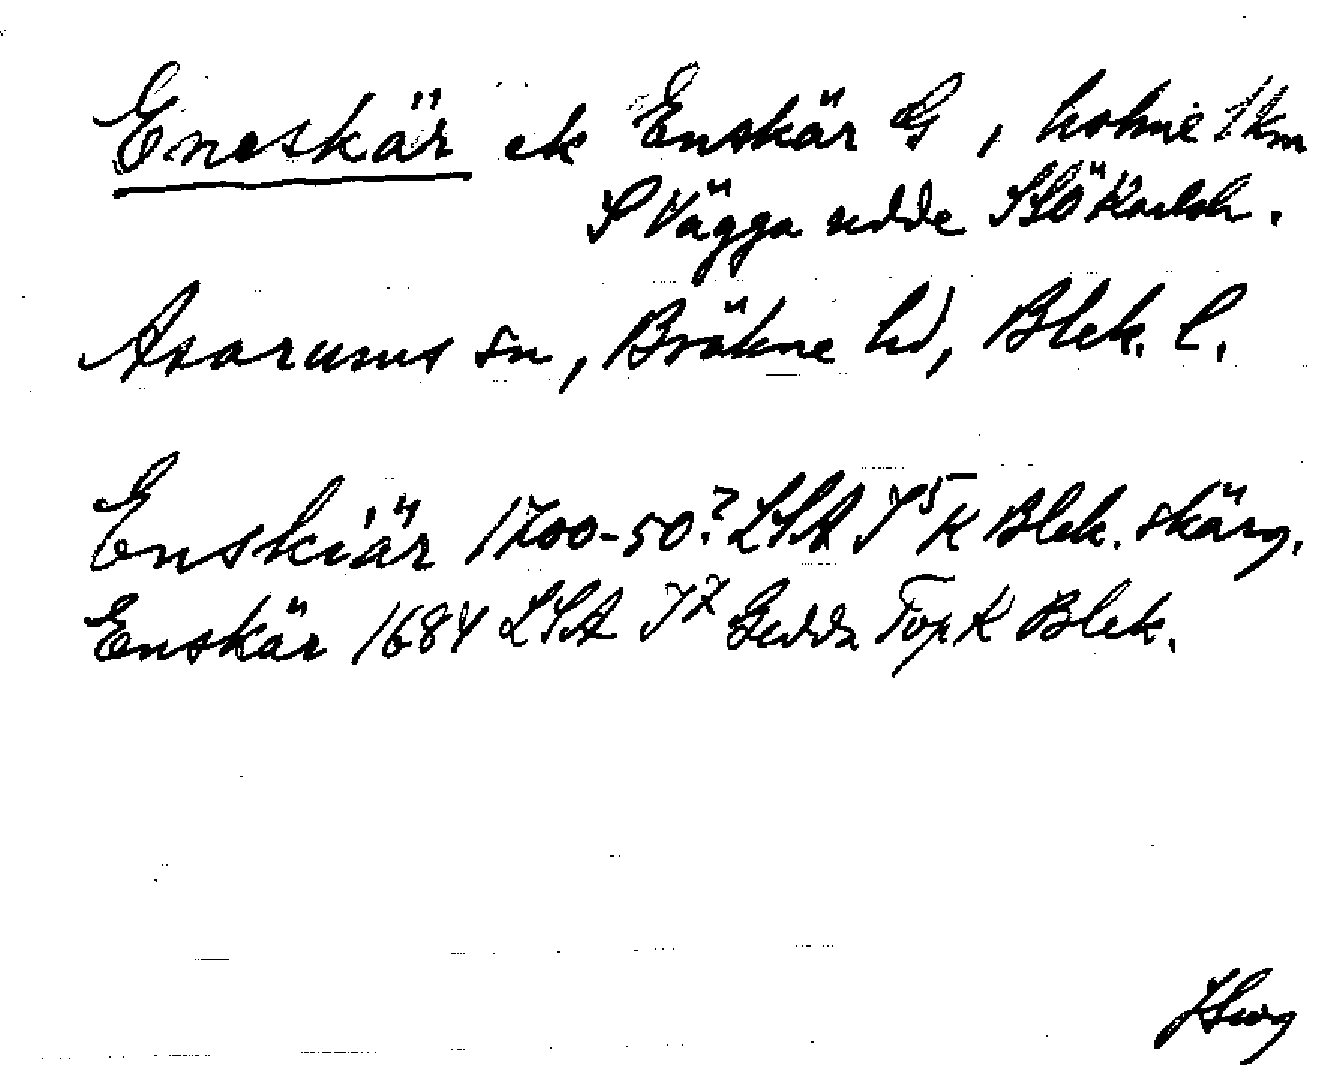 Eneskär ek Enskär G, holme 1km
S Vägga udde SSÖ Karlsh.
Asarums sn, Bräkne hd, Blek. l.
Enskiär 1700-50? LSA J5 K Blek. skärg.
Enskär 1684 LSA J7 Gedda Top K Blek.